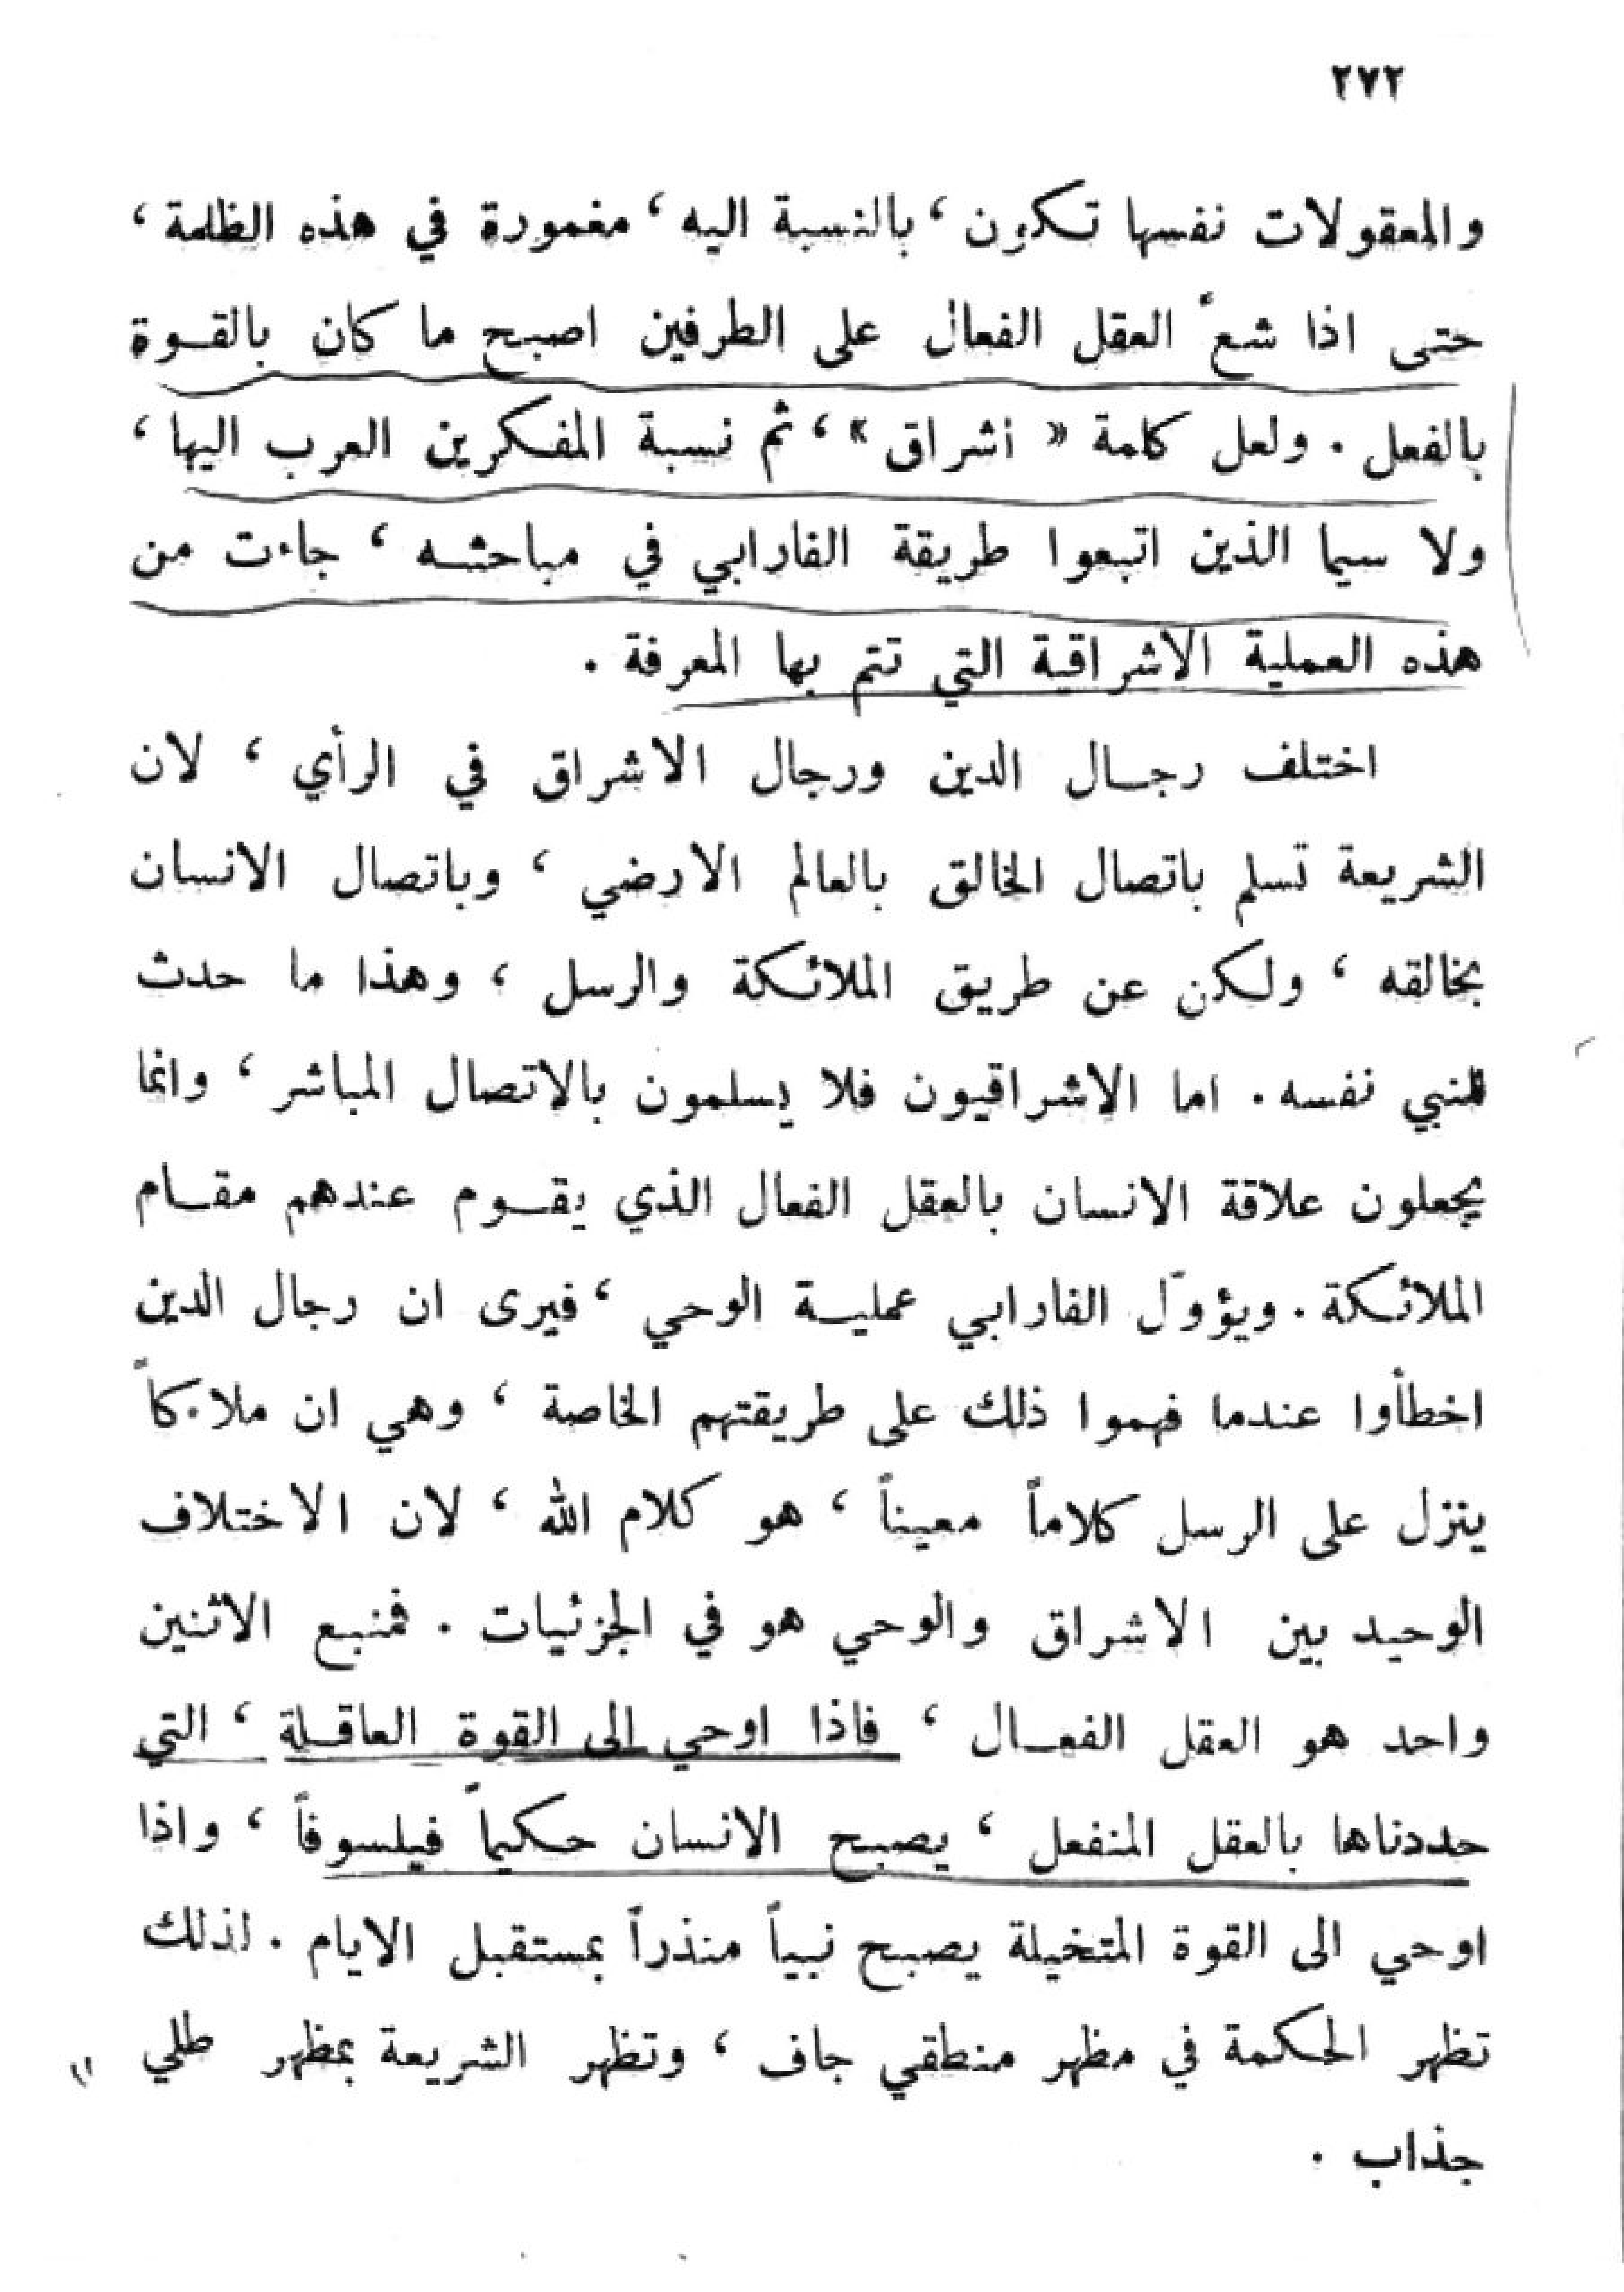 ٢٧٢
والمعقولات نفسها تكون ، بالنسبة اليه ، مغمورة في هذه الظلمة ،
حتى اذا شعّ العقل الفعال على الطرفين اصبح ما كان بالقـوة
بالفعل . ولعل كلمة « أشراق » ، ثم نسبة المفكرين العرب اليها ،
ولا سيما الذين اتبعوا طريقة الفارابي في مباحثـه ، جاءت من
هذه العملية الاشراقية التي تتم بها المعرفة .
اختلف رجـال الدين ورجال الاشراق في الرأي ، لان
الشريعة تسلم باتصال الخالق بالعالم الارضي ، وباتصال الانسان
بخالقه ، ولكن عن طريق الملائكة والرسل ، وهذا ما حدث
للنبي نفسه . اما الاشراقيون فلا يسلمون بالاتصال المباشر ، وانما
يجعلون علاقة الانسان بالعقل الفعال الذي يقـوم عندهم مقـام
الملائكة . ويؤوّل الفارابي عمليـة الوحي ، فيرى ان رجال الدين
اخطأوا عندما فهموا ذلك على طريقتهم الخاصة ، وهي ان ملاكاً
ينزل على الرسل كلاماً معيناً ، هو كلام الله ، لان الاختلاف
الوحيد بين الاشراق والوحي هو في الجزئيات . فمنبع الاثنين
واحد هو العقل الفعـال ، فاذا اوحي الى القوة العاقـلة ، التي
حددناها بالعقل المنفعل ، يصبح الانسان حكيماً فيلسوفاً ، واذا
اوحي الى القوة المتخيلة يصبح نبياً منذراً بمستقبل الايام . لذلك
تظهر الحكمة في مظهر منطقي جاف ، وتظهر الشريعة بمظهر طلي
جذاب .